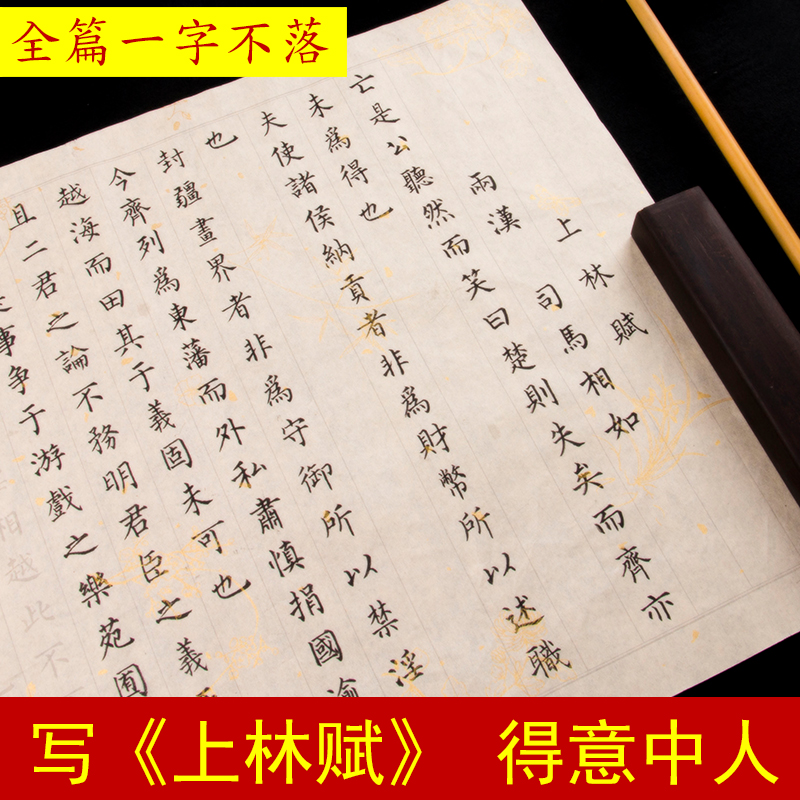 全篇一字不落
上林賦
兩漢 司馬相如
亡是公聽然而笑曰楚則失矣而齊亦
未爲得也
夫使諸侯納貢者非爲財幣所以述職
也
封疆畫界者非爲守御所以禁淫
今齊列爲東藩而外私肅慎捐國隃
越海而田其于義固未可也
且二君之論不務明君臣之義
事争于游戲之樂苑囿
写《上林赋》 得意中人